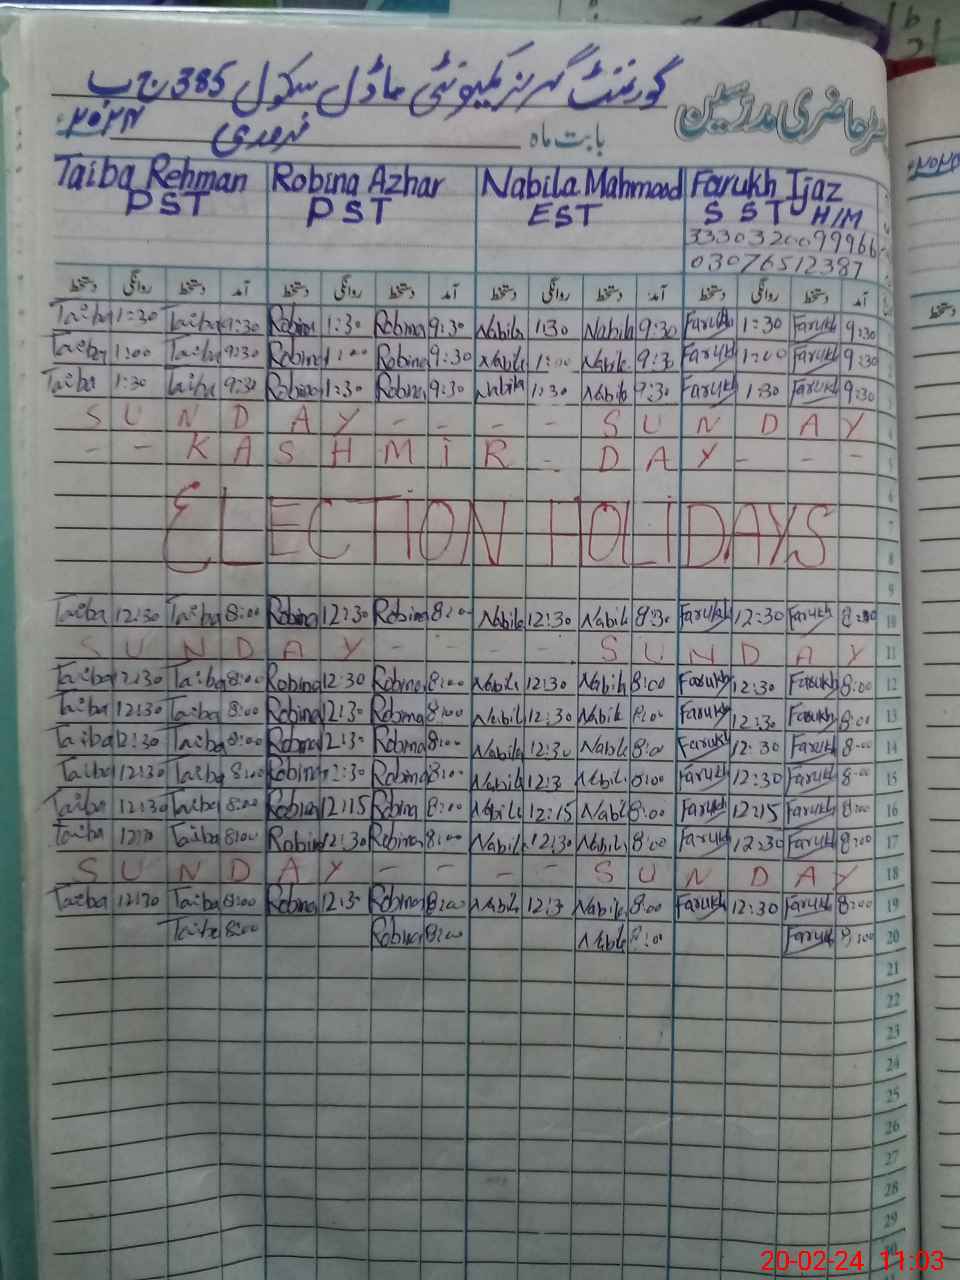 گورنمنٹ گرلز کمیونٹی ماڈل سکول 385 ج ب
رجسٹر حاضری مدرسین
بابت ماہ فروری ۲۰۲۴
Taiba Rehman Robina Azhar Nabila Mahmood Farukh Ijaz
PST PST EST SST H/M
3330320099966
03076512387
دستخط روانگی دستخط آمد دستخط روانگی دستخط آمد دستخط روانگی دستخط آمد دستخط روانگی دستخط آمد
Taiba 1:30 Taiba 9:30 Robina 1:30 Robina 9:30 Nabila 1:30 Nabila 9:30 Farukh 1:30 Farukh 9:30
Taiba 1:00 Taiba 9:30 Robina 1:00 Robina 9:30 Nabila 1:00 Nabila 9:30 Farukh 1:00 Farukh 9:30
Taiba 1:30 Taiba 9:30 Robina 1:30 Robina 9:30 Nabila 1:30 Nabila 9:30 Farukh 1:30 Farukh 9:30
SUNDAY - - - - SUNDAY 4
- - KASHMIR - DAY - - - 5
6
ELECTION HOLIDAYS 7
8
9
Taiba 12:30 Taiba 8:00 Robina 12:30 Robina 8:00 Nabila 12:30 Nabila 8:30 Farukh 12:30 Farukh 8:00 10
SUNDAY - - - - SUNDAY 11
Taiba 12:30 Taiba 8:00 Robina 12:30 Robina 8:00 Nabila 12:30 Nabila 8:00 Farukh 12:30 Farukh 8:00 12
Taiba 12:30 Taiba 8:00 Robina 12:30 Robina 8:00 Nabila 12:30 Nabila 8:00 Farukh 12:30 Farukh 8:00 13
Taiba 12:30 Taiba 8:00 Robina 12:30 Robina 8:00 Nabila 12:30 Nabila 8:00 Farukh 12:30 Farukh 8:00 14
Taiba 12:30 Taiba 8:00 Robina 12:30 Robina 8:00 Nabila 12:3 Nabila 8:00 Farukh 12:30 Farukh 8:00 15
Taiba 12:30 Taiba 8:00 Robina 12:15 Robina 8:00 Nabila 12:15 Nabila 8:00 Farukh 12:15 Farukh 8:00 16
Taiba Taiba 8:00 Robina 12:30 Robina 8:00 Nabila 12:30 Nabila 8:00 Farukh 12:30 Farukh 8:00 17
SUNDAY - - - - SUNDAY 18
Taiba 12:30 Taiba 8:00 Robina 12:3 Robina 8:00 Nabila 12:3 Nabila 8:00 Farukh 12:30 Farukh 8:00 19
Taiba 8:00 Robina 8:00 Nabila 8:00 Farukh 8:00 20
21
22
23
24
25
26
27
28
29
30
20-02-24 11:03